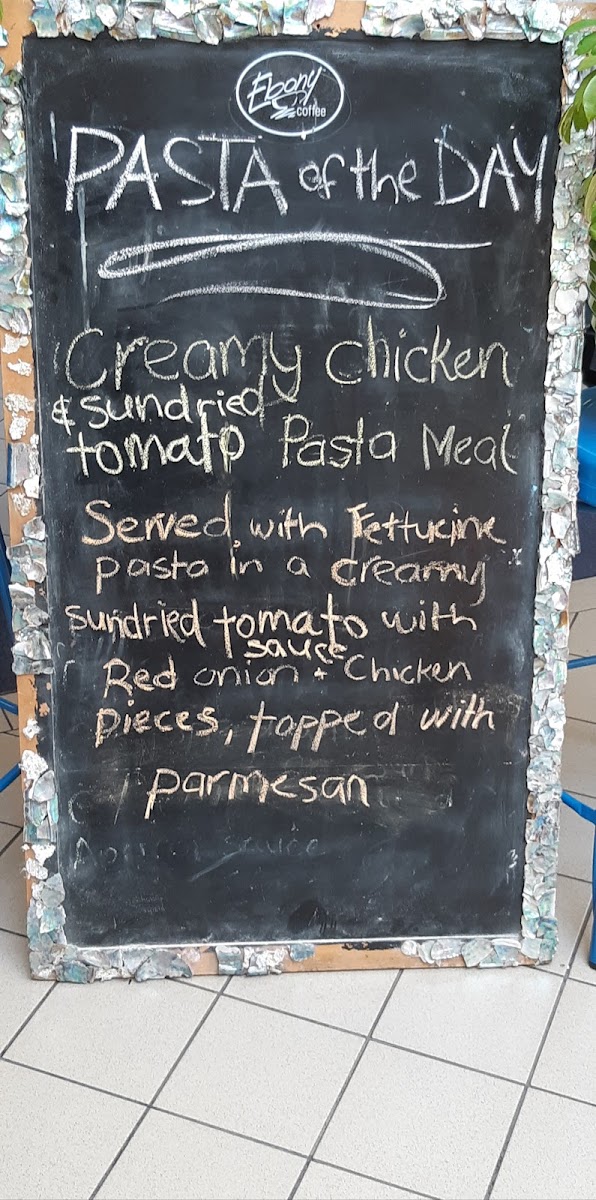 Ebony
coffee
PASTA of the DAY
Creamy chicken
& sundried
tomato Pasta Meal
Served with Fettucine
pasta in a creamy
sundried tomato with
sauce
Red onion + Chicken
pieces, topped with
parmesan
sauce